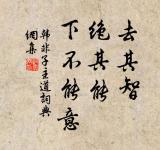 去其智
絶其能
下不能意
韩非子主道詞典
網集